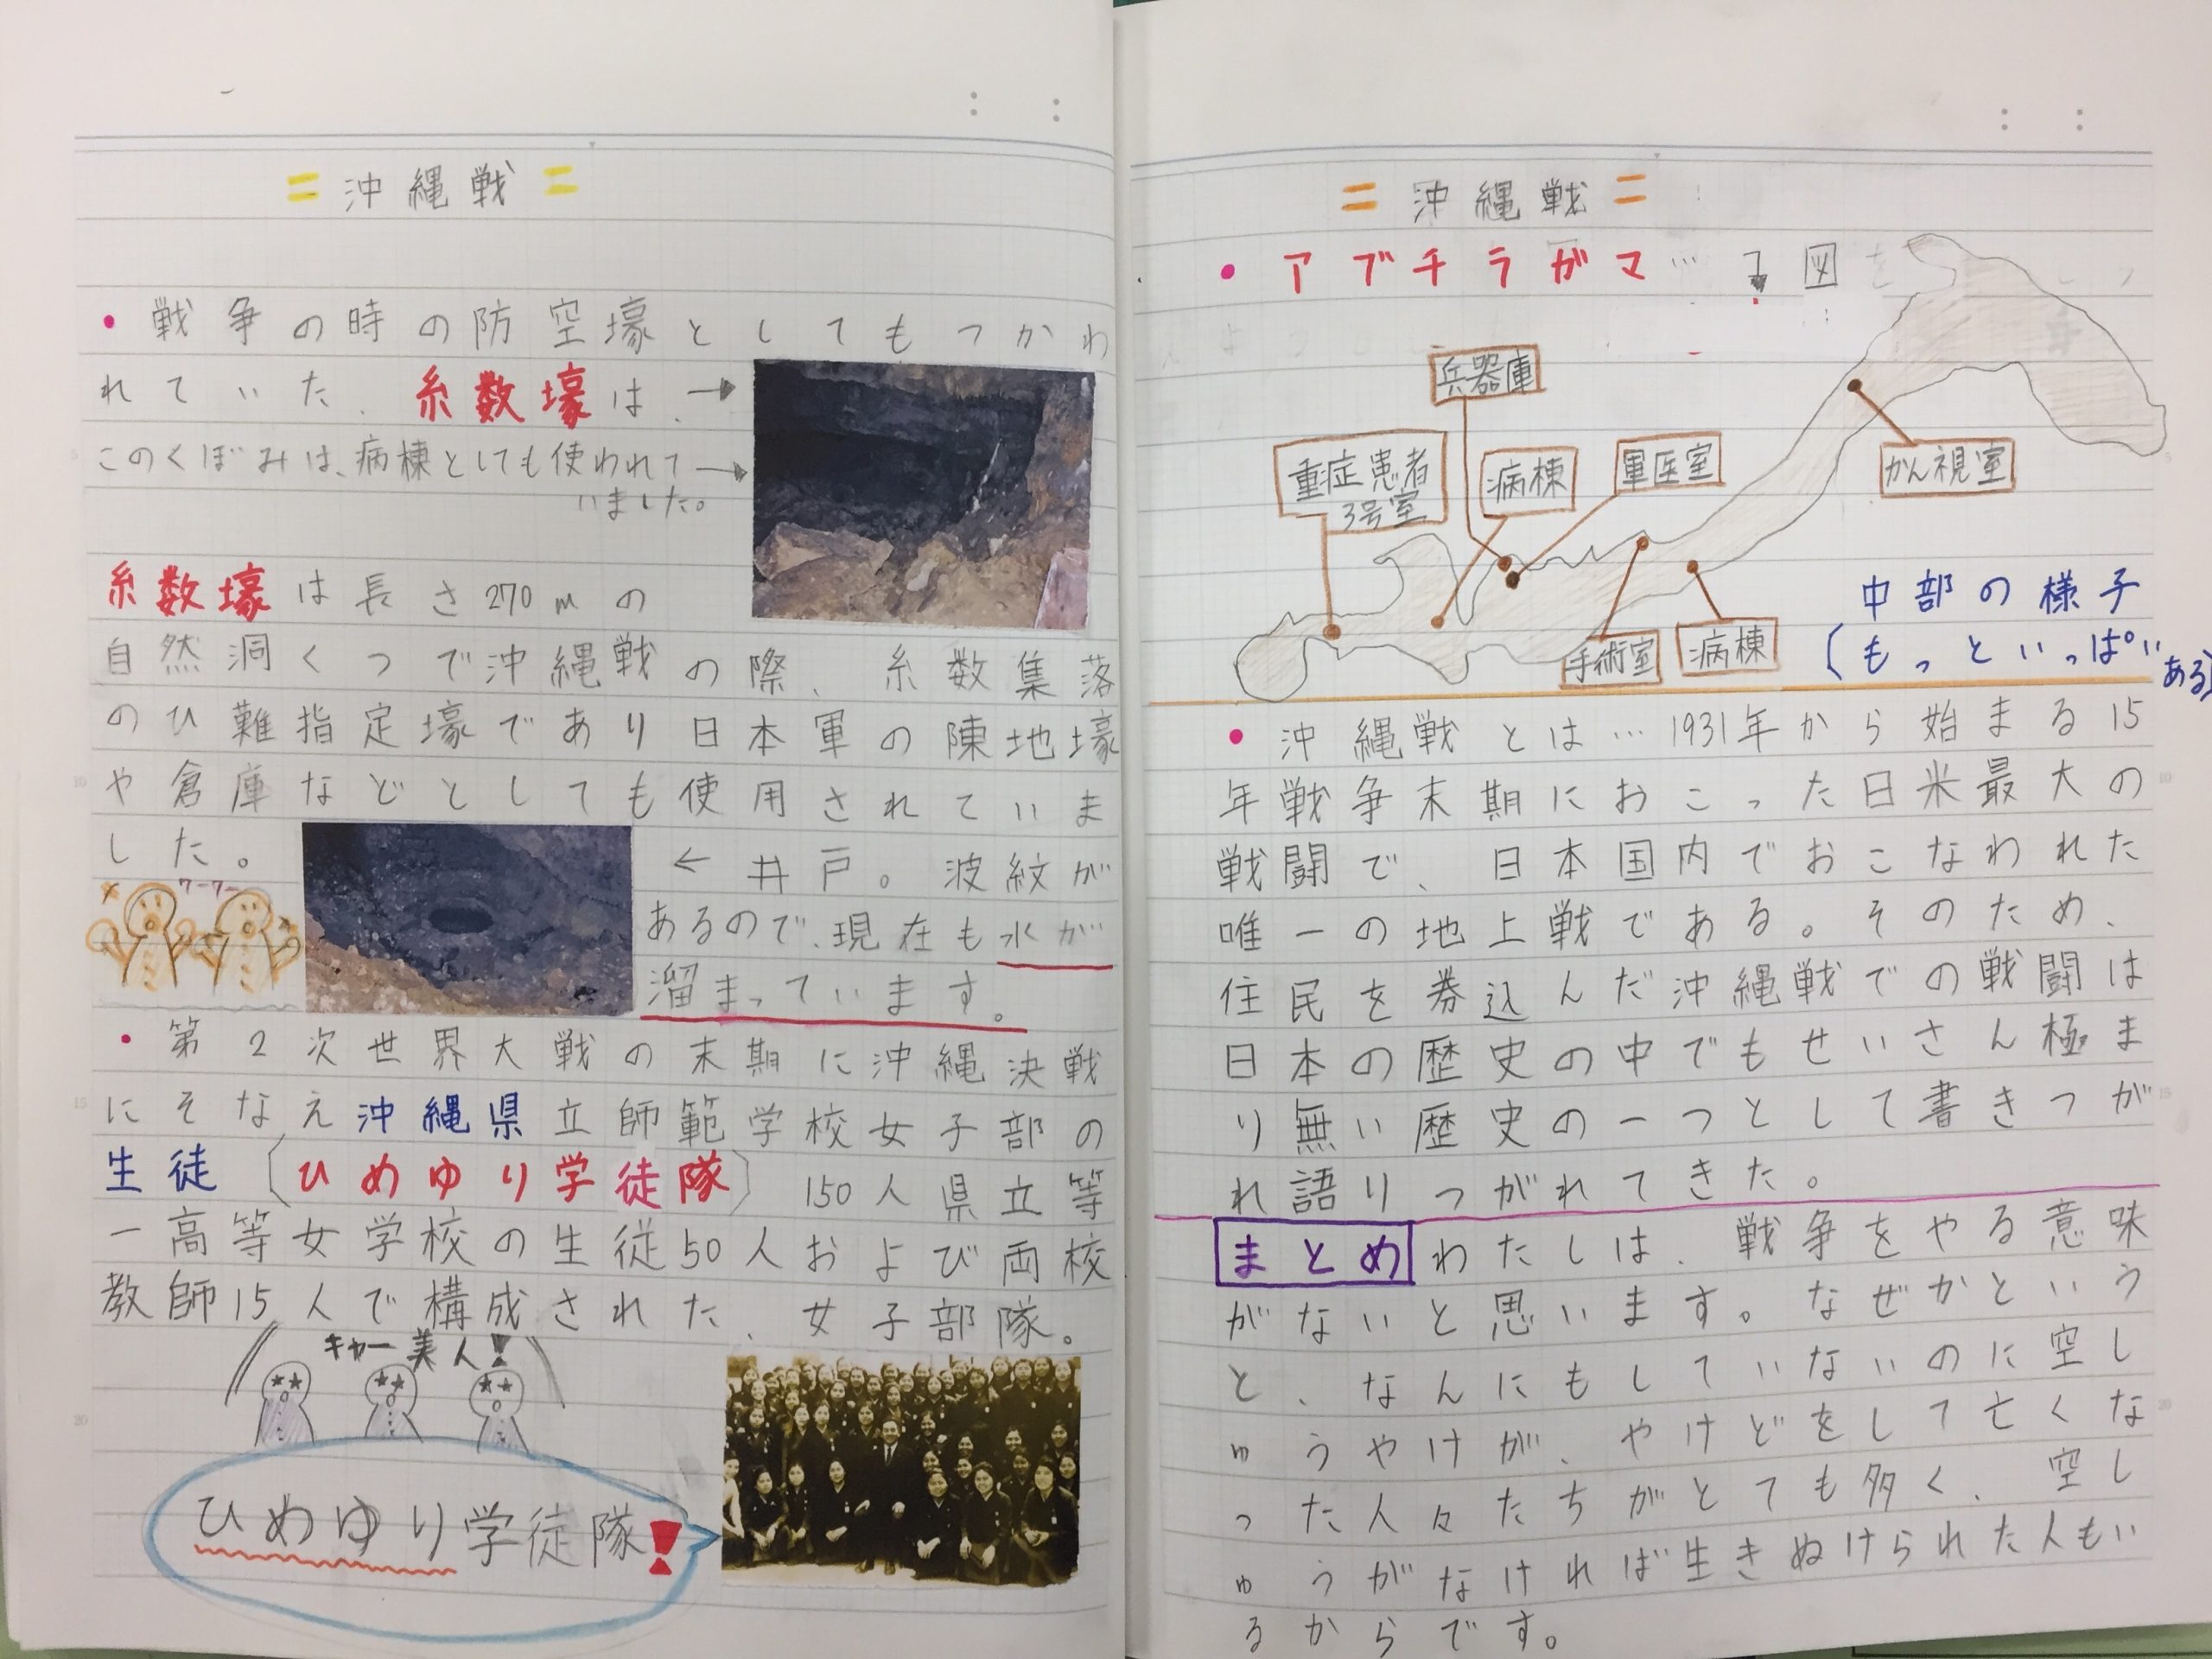 = 沖縄戦 =
・戦争の時の防空壕としてもつかわ
れていた、糸数壕は、→
このくぼみは、病棟としても使われて→
いました。
糸数壕は長さ270mの
自然洞くつで沖縄戦の際、糸数集落
のひ難指定壕であり日本軍の陳地壕
や倉庫などとしても使用されていま
した。
← 井戸。波紋が
ワーワー
あるので、現在も水が
溜まっています。
・第2次世界大戦の末期に沖縄決戦
にそなえ沖縄県立師範学校女子部の
生徒(ひめゆり学徒隊)150人県立等
一高等女学校の生徒50人および両校
教師15人で構成された、女子部隊。
キャー美人!
ひめゆり学徒隊!
= 沖縄戦 =
・アブチラガマ… 図
兵器庫
重症患者
3号室
病棟
軍医室
かん視室
手術室
病棟
中部の様子
(もっといっぱい
ある)
・沖縄戦とは…1931年から始まる15
年戦争末期におこった日米最大の
戦闘で、日本国内でおこなわれた
唯一の地上戦である。そのため、
住民を券込んだ沖縄戦での戦闘は
日本の歴史の中でもせいさん極ま
り無い歴史の一つとして書きつが
れ語りつがれてきた。
まとめ わたしは、戦争をやる意味
がないと思います。なぜかという
と、なんにもしていないのに空し
ゅうやけが、やけどをして亡くな
った人々たちがとても多く、空し
ゅうがなければ生きぬけられた人もい
るからです。